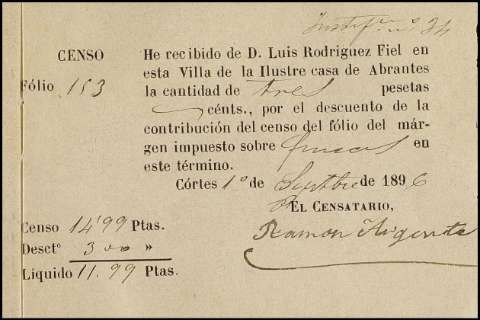 Justifte nº 34
CENSO
Fólio 153
He recibido de D. Luis Rodriguez Fiel en
esta Villa de la Ilustre casa de Abrantes
la cantidad de tres pesetas
cénts., por el descuento de la
contribución del censo del fólio del már-
gen impuesto sobre fincas en
este término.
Córtes 1º de Septbre de 1896
EL CENSATARIO,
Ramon Argente
Censo 14'99 Ptas.
Desctº 3 00 »
Líquido 11.99 Ptas.